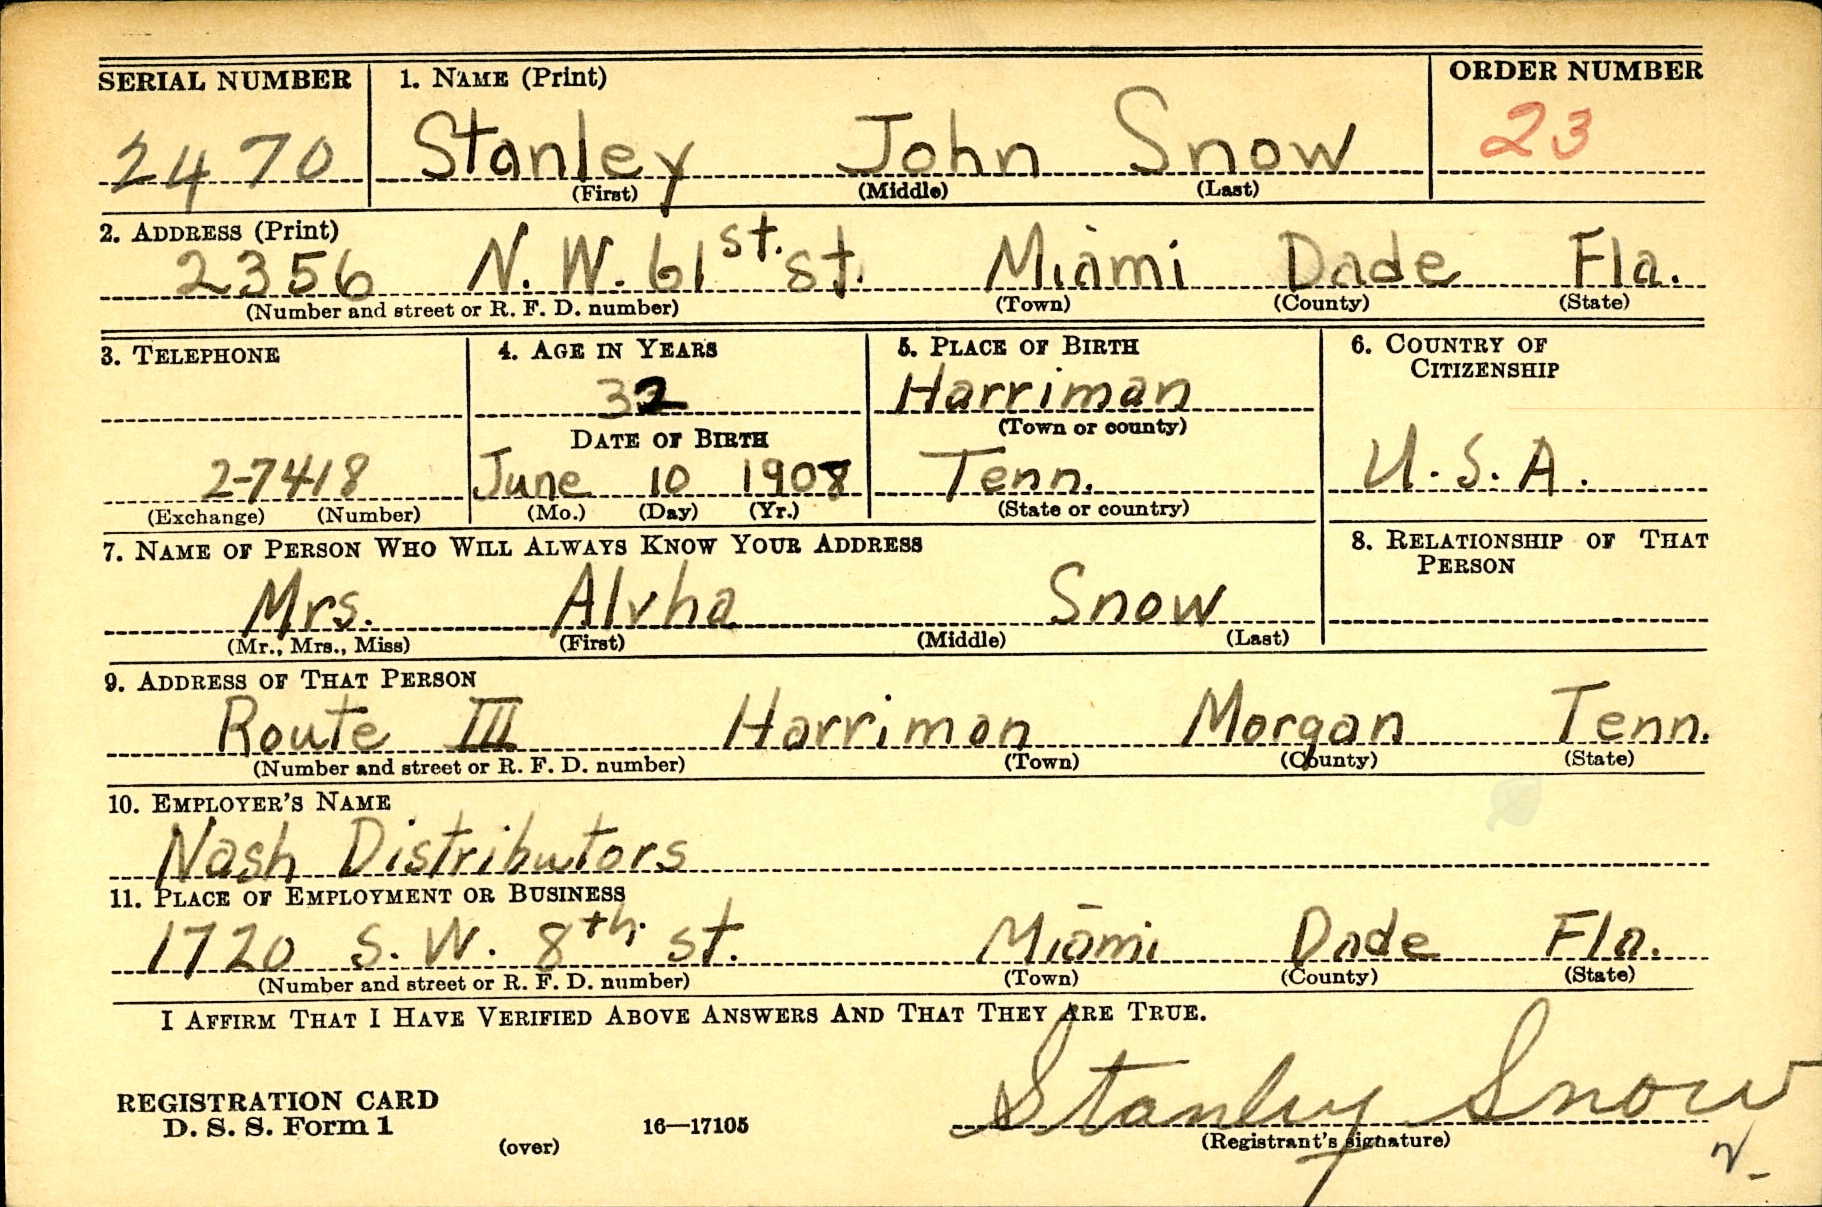 SERIAL NUMBER 1. NAME (Print) ORDER NUMBER
2470 Stanley John Snow 23
(First) (Middle) (Last)
2. ADDRESS (Print)
2356 N. W. 61st. st. Miami Dade Fla.
(Number and street or R. F. D. number) (Town) (County) (State)
3. TELEPHONE 4. AGE IN YEARS 5. PLACE OF BIRTH 6. COUNTRY OF
CITIZENSHIP
32 Harriman
DATE OF BIRTH (Town or county)
2-7418 June 10 1908 Tenn. U. S. A.
(Exchange) (Number) (Mo.) (Day) (Yr.) (State or country)
7. NAME OF PERSON WHO WILL ALWAYS KNOW YOUR ADDRESS 8. RELATIONSHIP OF THAT
PERSON
Mrs. Alvha Snow
(Mr., Mrs., Miss) (First) (Middle) (Last)
9. ADDRESS OF THAT PERSON
Route III Harriman Morgan Tenn.
(Number and street or R. F. D. number) (Town) (County) (State)
10. EMPLOYER'S NAME
Nash Distributors
11. PLACE OF EMPLOYMENT OR BUSINESS
1720 S. W. 8th. st. Miami Dade Fla.
(Number and street or R. F. D. number) (Town) (County) (State)
I AFFIRM THAT I HAVE VERIFIED ABOVE ANSWERS AND THAT THEY ARE TRUE.
Stanley Snow
REGISTRATION CARD
D. S. S. Form 1 16—17105
(over) (Registrant's signature)